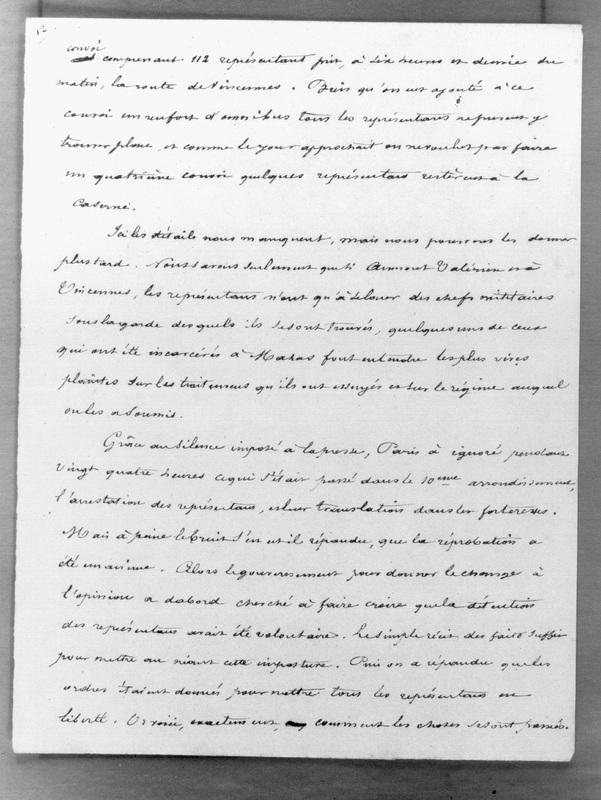 12
convoi
comprenant 112 représentant prit, à six heures et demie du
matin, la route de Vincennes. Bien qu'on eut ajouté à ce
convoi un renfort d'omnibus tous les représentans ne purent y
trouver place, et comme le jour approchait on ne voulut pas faire
un quatrième convoi quelques représentans restèrent à la
caserne.
Ici les détails nous manquent, mais nous pourrons les donner
plus tard. Nous savons seulement que si au mont Valérien et à
Vincennes, les représentans n'ont qu'à se louer des chefs militaires
sous la garde desquels ils se sont trouvés, quelques uns de ceux
qui ont été incarcérés à Mazas font entendre les plus vives
plaintes sur les traitemens qu'ils ont essuyés et sur le régime auquel
on les a soumis.
Grâce au silence imposé à la presse, Paris à ignoré pendant
vingt quatre heures ce qui s'était passé dans le 10eme arrondissement,
l'arrestation des représentans, et leur translation dans les forteresses.
Mais à peine le bruit s'en est il répandu, que la réprobation a
été unanime. Alors le gouvernement pour donner le change à
l'opinion a dabord cherché à faire croire que la détention
des représentans avait été volontaire. Le simple récit des faits suffit
pour mettre au néant cette imposture. Puis on a répandu que les
ordres étaient donnés pour mettre tous les représentans en
liberté. Or voici, exactement, comment les choses se sont passés.